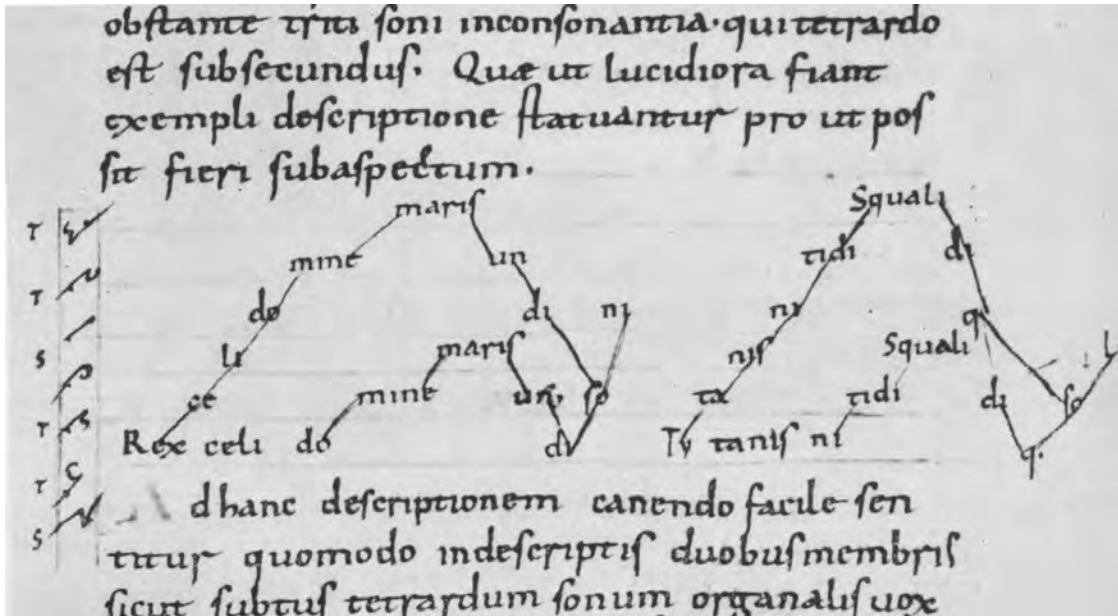 obstante triti soni inconsonantia· qui tetrardo
est subsecundus. Quæ ut lucidiora fiant
exempli descriptione statuantur pro ut pos
sit fieri subaspectum.
maris Squali
T mine un tidi di
T do di ni ni q
S li maris nis Squali l
ce mine un so ta tidi di so
T Rex celi do di Ty tanis ni q.
T
S
Ad hanc descriptionem canendo facile sen
titur quomodo indescriptis duobus membris
sicut subtus tetrardum sonum organalis vox